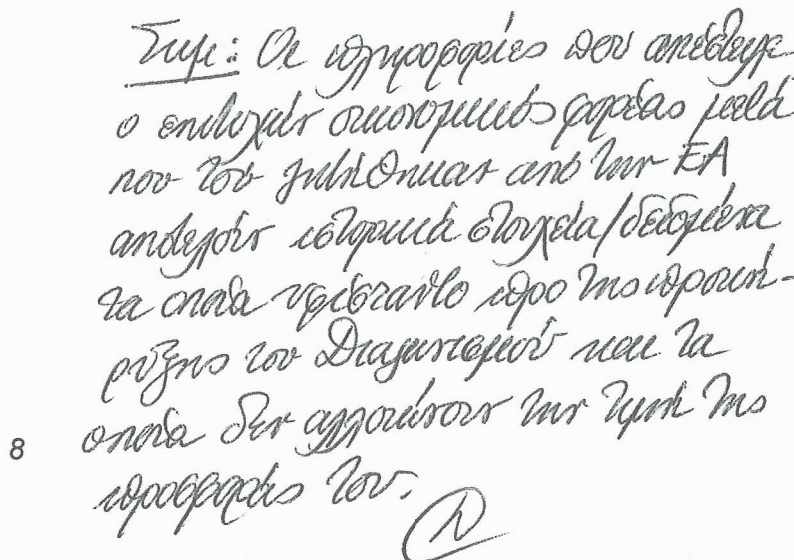 Σημ: Οι πληροφορίες που απέστειλε
ο επιτυχών οικονομικός φορέας μετά
που του ζητήθηκαν από την ΕΑ
αποτελούν ιστορικά στοιχεία/δεδομένα
τα οποία υφίσταντο προ της προκή-
ρυξης του Διαγωνισμού και τα
8 οποία δεν αλλοιώνουν την τιμή της
προσφοράς του.